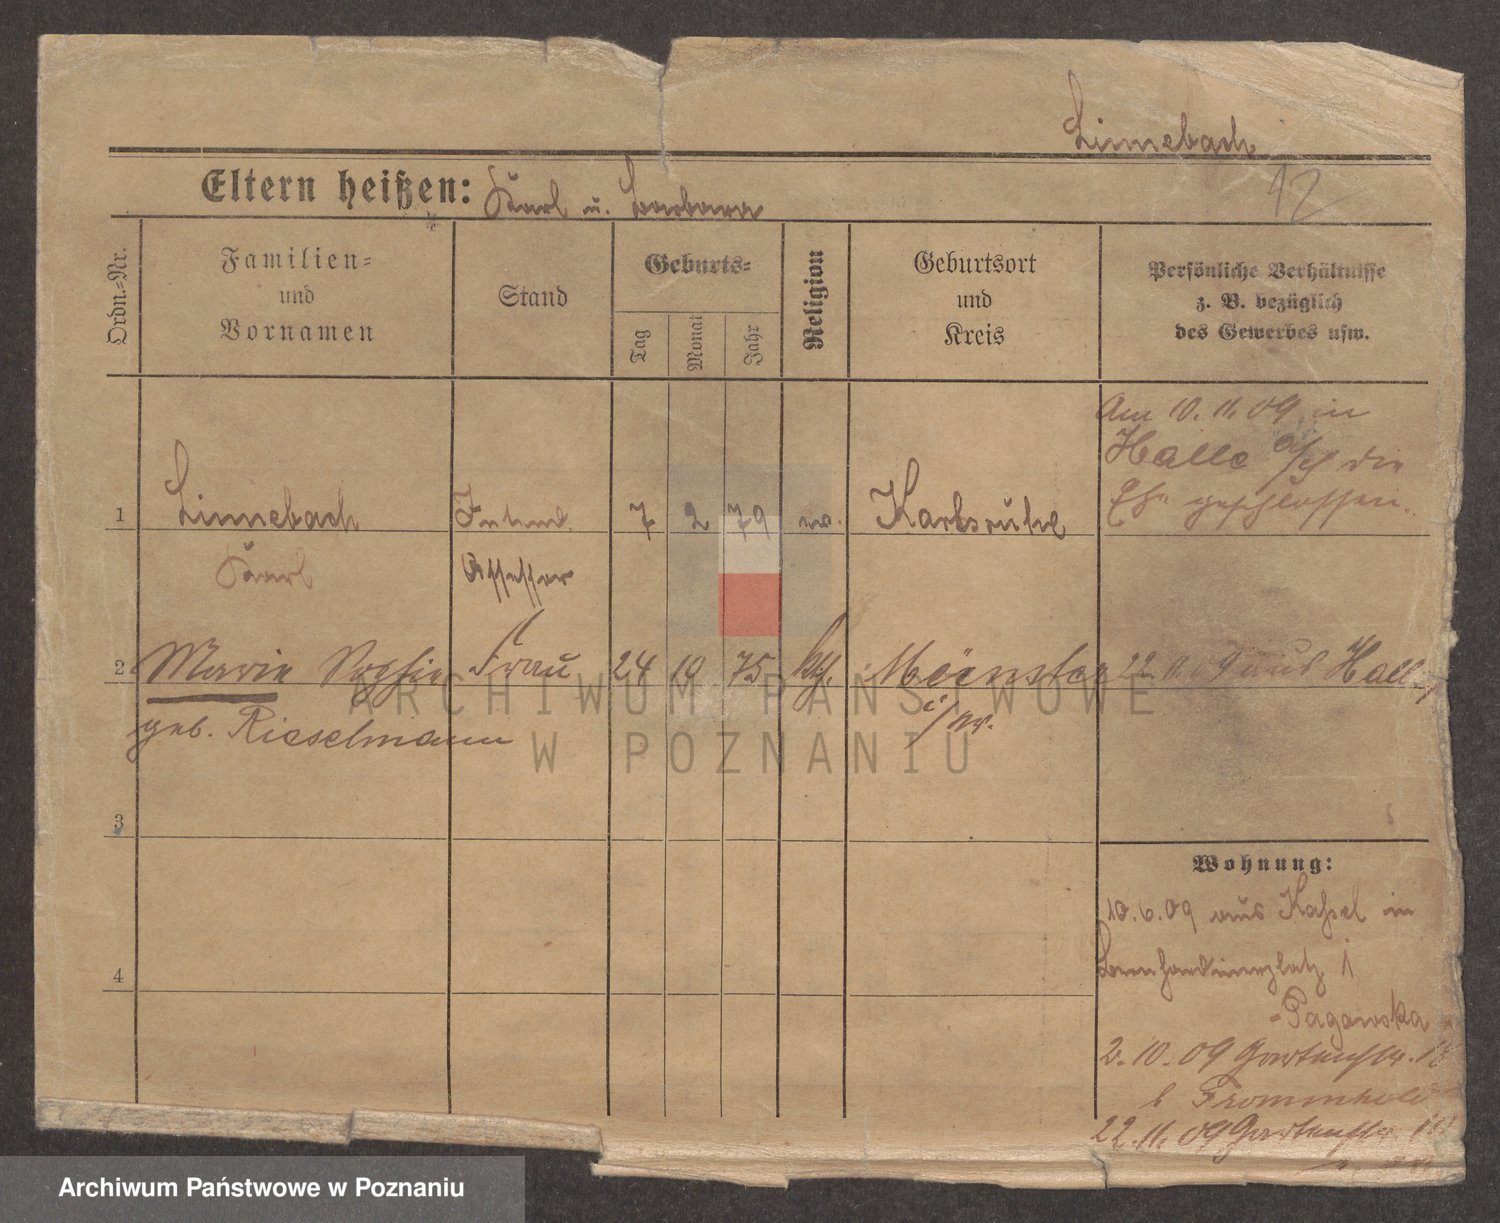 Linnebach
12
Eltern heißen: Karl u. Barbara
Ordn.-Nr.
Familien-
und
Vornamen
Stand
Geburts-
Tag
Monat
Jahr
Religion
Geburtsort
und
Kreis
Persönliche Verhältnisse
z. B. bezüglich
des Gewerbes usw.
Am 10. 11. 09 in
Halle a/S die
Ehe geschlossen.
1 Linnebach Intend. 7 2 79 ev. Karlsruhe
Karl Assessor
2 Marie Sophie Frau 24 10 75 Münster 22. 11. 09 aus Halle
geb. Rieselmann i/W.
3
Wohnung:
10. 6. 09 aus Kassel in
4 Bernhardinerplatz 1
Pagowska
2. 10. 09 Gartenstr.
b Frommhold
22. 11. 09 Gartenstr.
ARCHIWUM PAŃSTWOWE
W POZNANIU
Archiwum Państwowe w Poznaniu